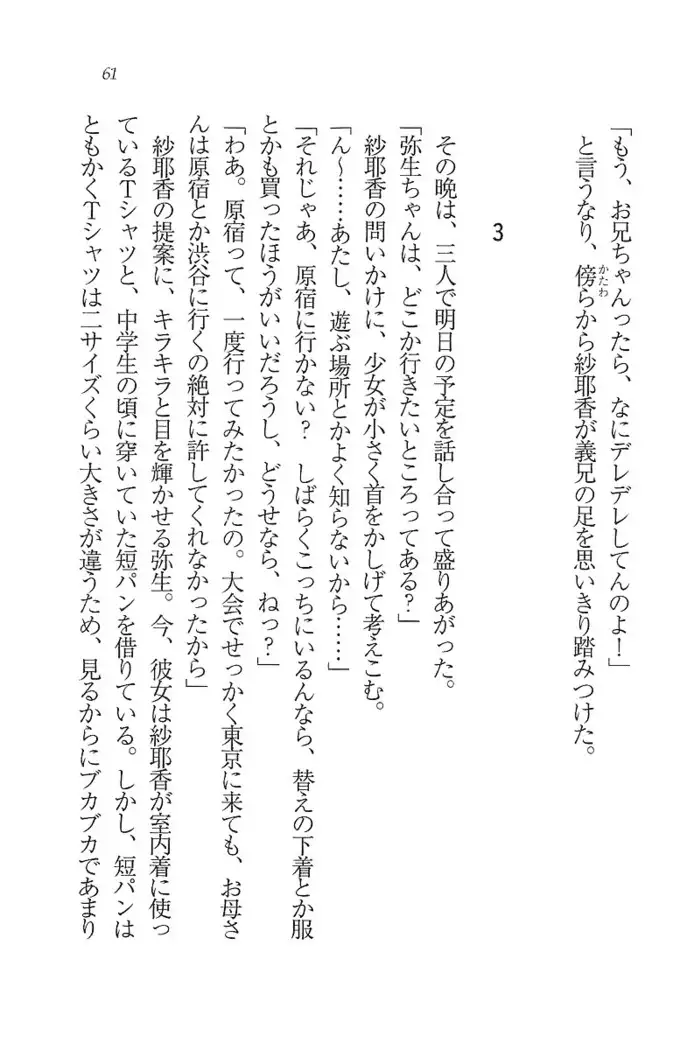 61
「もう、お兄ちゃんったら、なにデレデレしてんのよ！」
と言うなり、傍らから紗耶香が義兄の足を思いきり踏みつけた。
かたわ
3
その晩は、三人で明日の予定を話し合って盛りあがった。
「弥生ちゃんは、どこか行きたいところってある？」
紗耶香の問いかけに、少女が小さく首をかしげて考えこむ。
「ん〜……あたし、遊ぶ場所とかよく知らないから……」
「それじゃあ、原宿に行かない？　しばらくこっちにいるんなら、替えの下着とか服
とかも買ったほうがいいだろうし、どうせなら、ねっ？」
「わあ。原宿って、一度行ってみたかったの。大会でせっかく東京に来ても、お母さ
んは原宿とか渋谷に行くの絶対に許してくれなかったから」
紗耶香の提案に、キラキラと目を輝かせる弥生。今、彼女は紗耶香が室内着に使っ
ているＴシャツと、中学生の頃に穿いていた短パンを借りている。しかし、短パンは
ともかくＴシャツは二サイズくらい大きさが違うため、見るからにブカブカであまり